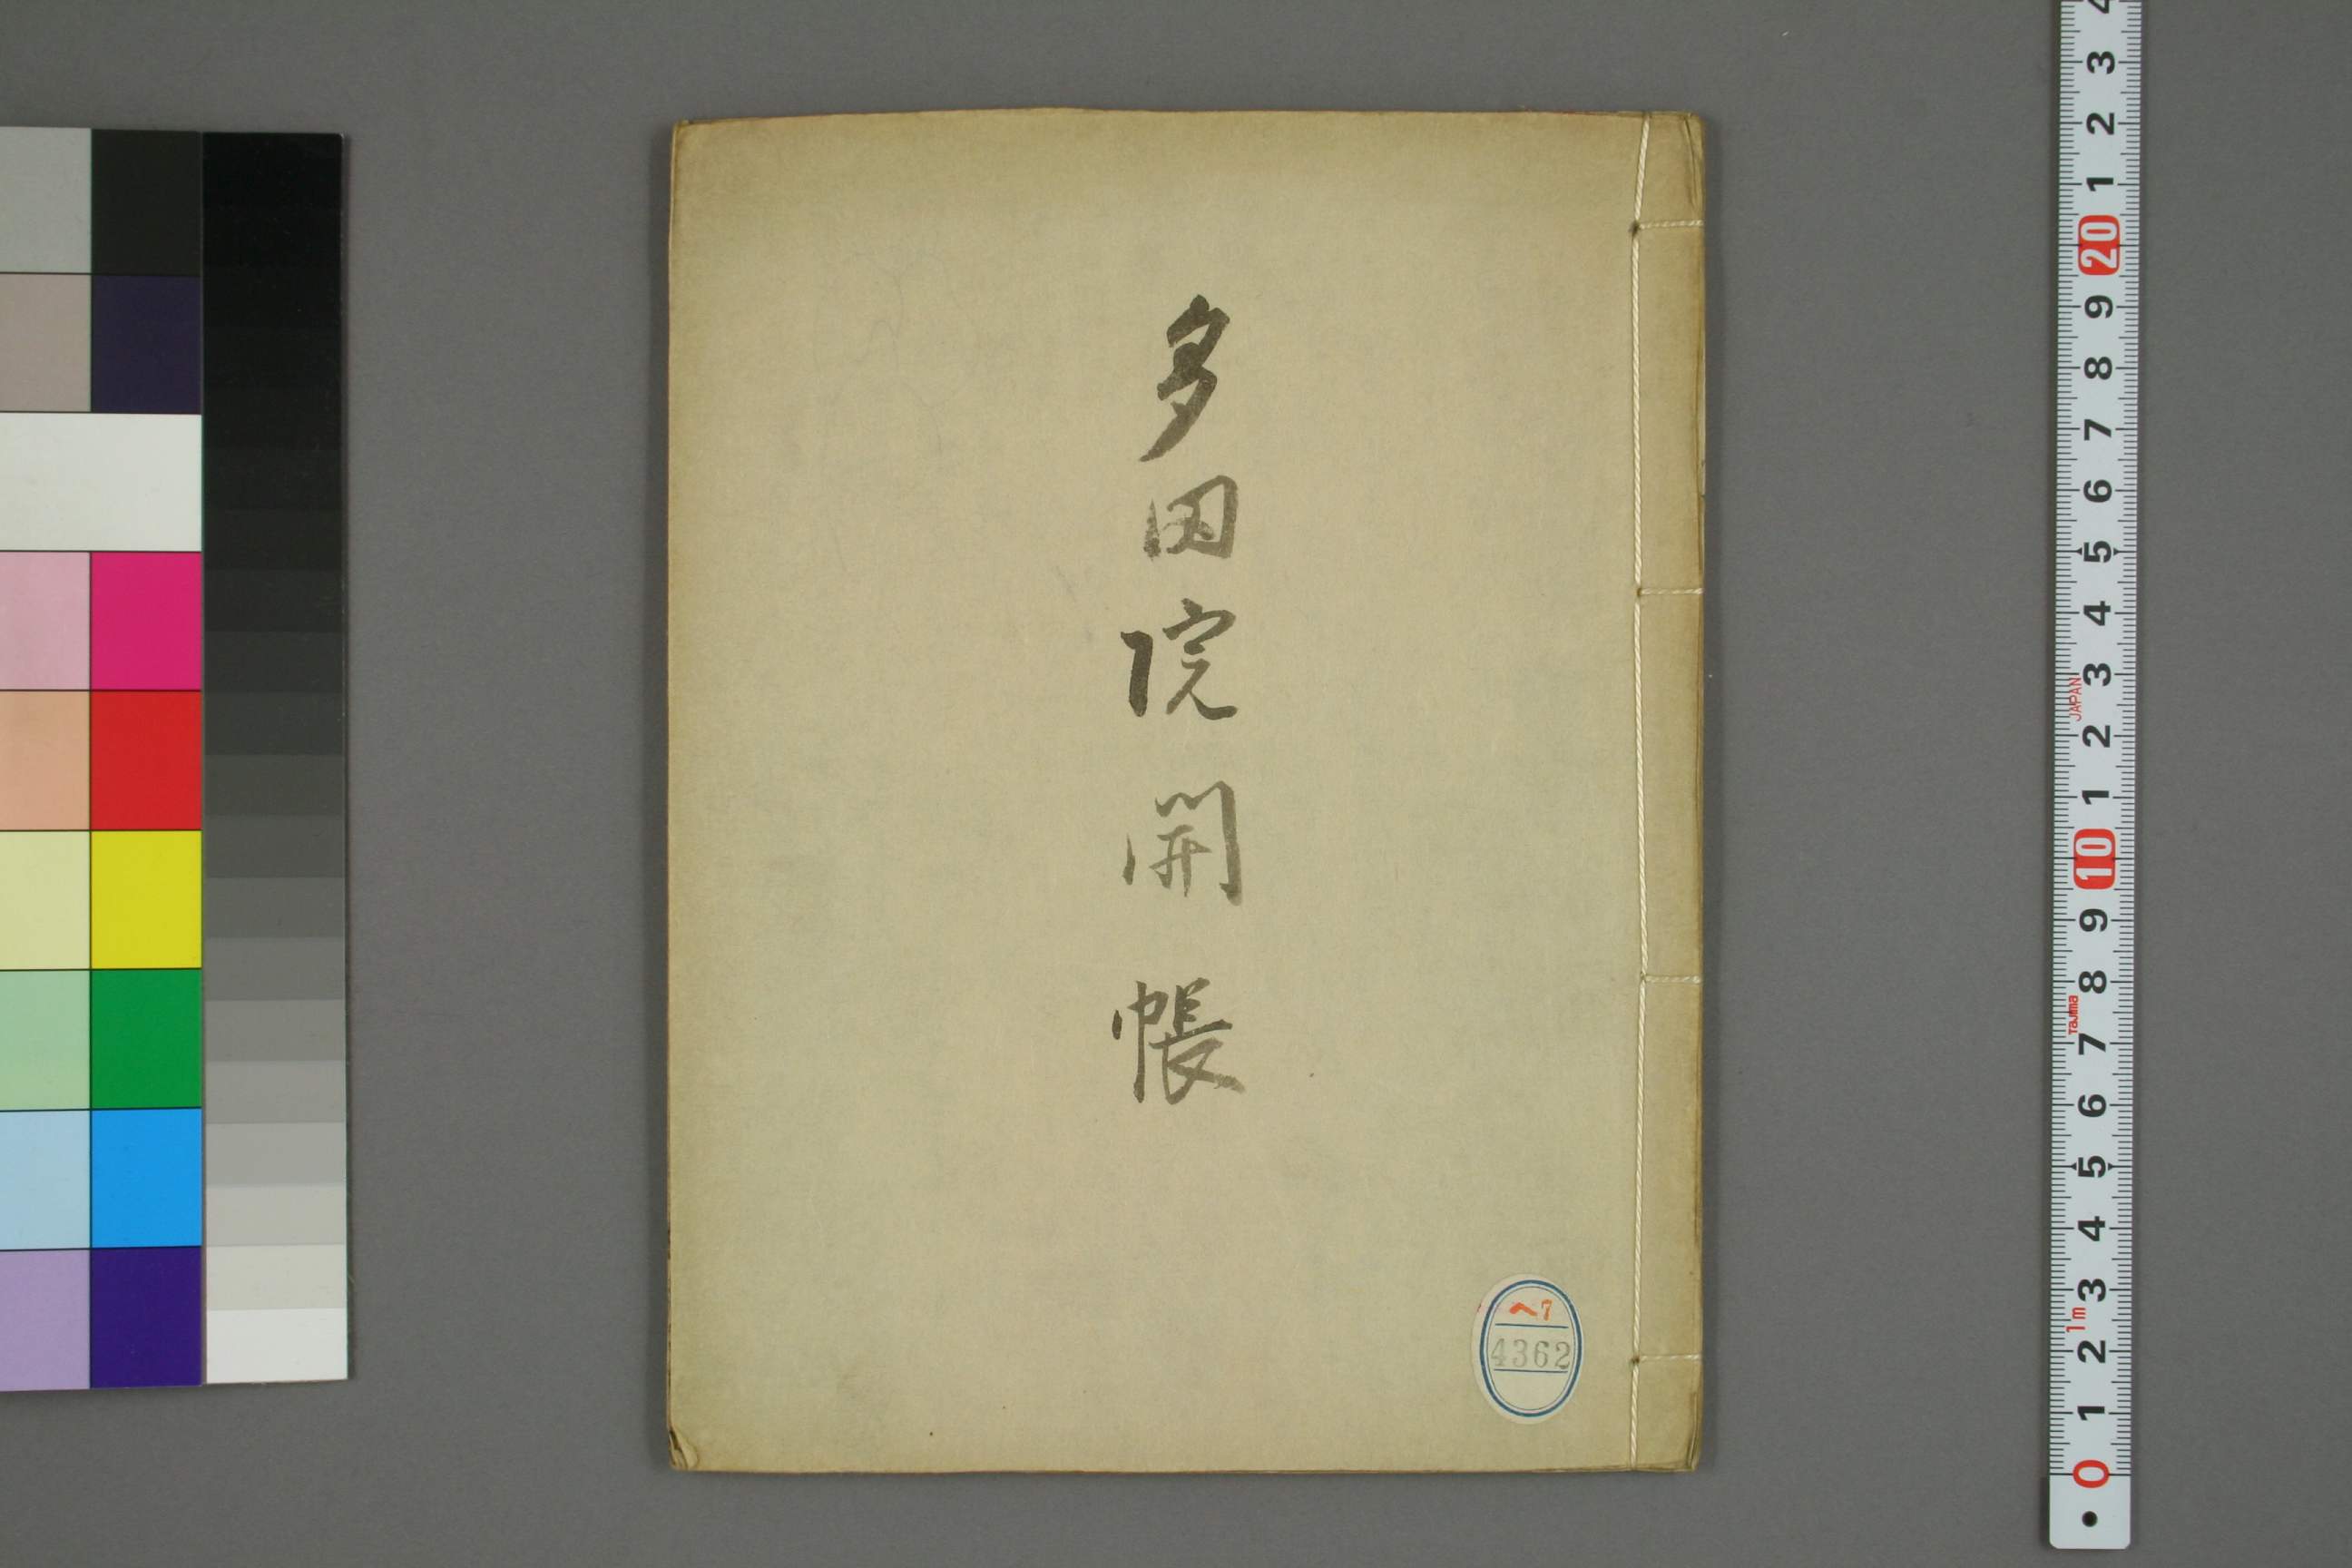 多田院開帳
ヘ7
4362
4
3
2
1
20
9
8
7
6
5
4
3
JAPAN
2
1
10
9
8
Tajima
7
6
5
4
3
1m
2
1
0